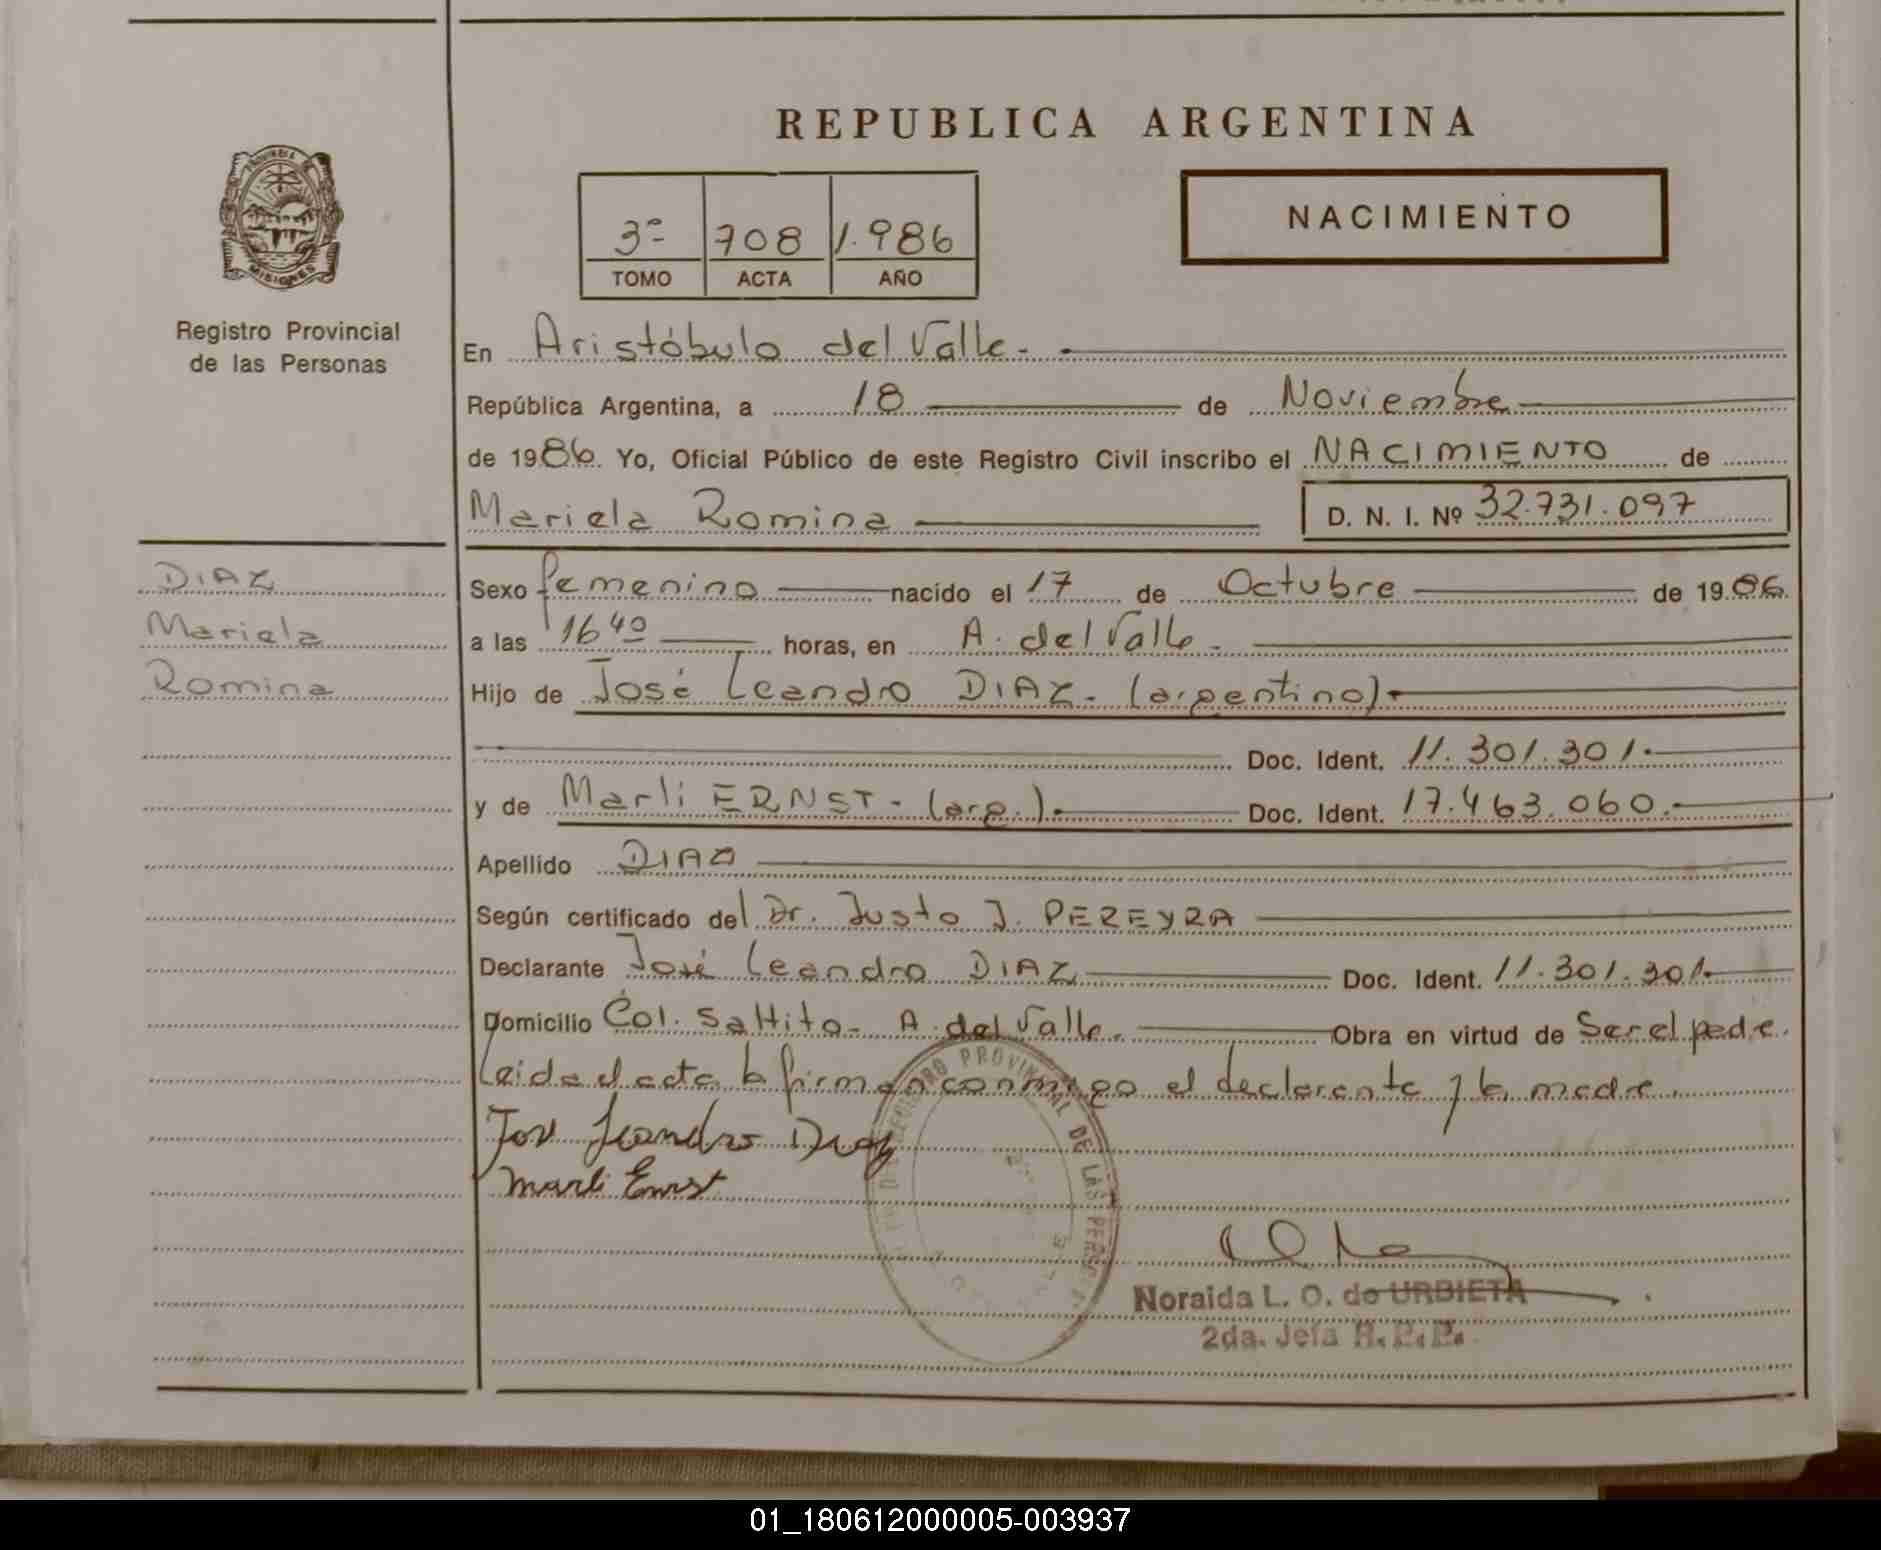 REPUBLICA ARGENTINA
PROVINCIA DE
MISIONES
Registro Provincial
de las Personas
3º 708 1.986
TOMO ACTA AÑO
NACIMIENTO
En Aristóbulo del Valle.
República Argentina, a 18 de Noviembre
de 1986. Yo, Oficial Público de este Registro Civil inscribo el NACIMIENTO de
Mariela Romina D. N. I. Nº 32.731.097
DIAZ
Mariela
Romina
Sexo femenino nacido el 17 de Octubre de 1986.
a las 16 40 horas, en A. del Valle.
Hijo de José Leandro DIAZ. (argentino).
Doc. Ident. 11.301.301.
y de Marli ERNST. (arg.). Doc. Ident. 17.463.060.
Apellido DIAZ
Según certificado del Dr. Justo J. PEREYRA
Declarante José Leandro DIAZ Doc. Ident. 11.301.301.
Domicilio Col. Saltito. A. del Valle. Obra en virtud de Ser el padre.
Leida el acta la firman conmigo el declarante y la madre.
José Leandro Diaz
Marli Ernst
REGISTRO PROVINCIAL DE LAS PERSONAS
Noraida L. O. de URBIETA
2da. Jefa R. P. P.
01_180612000005-003937